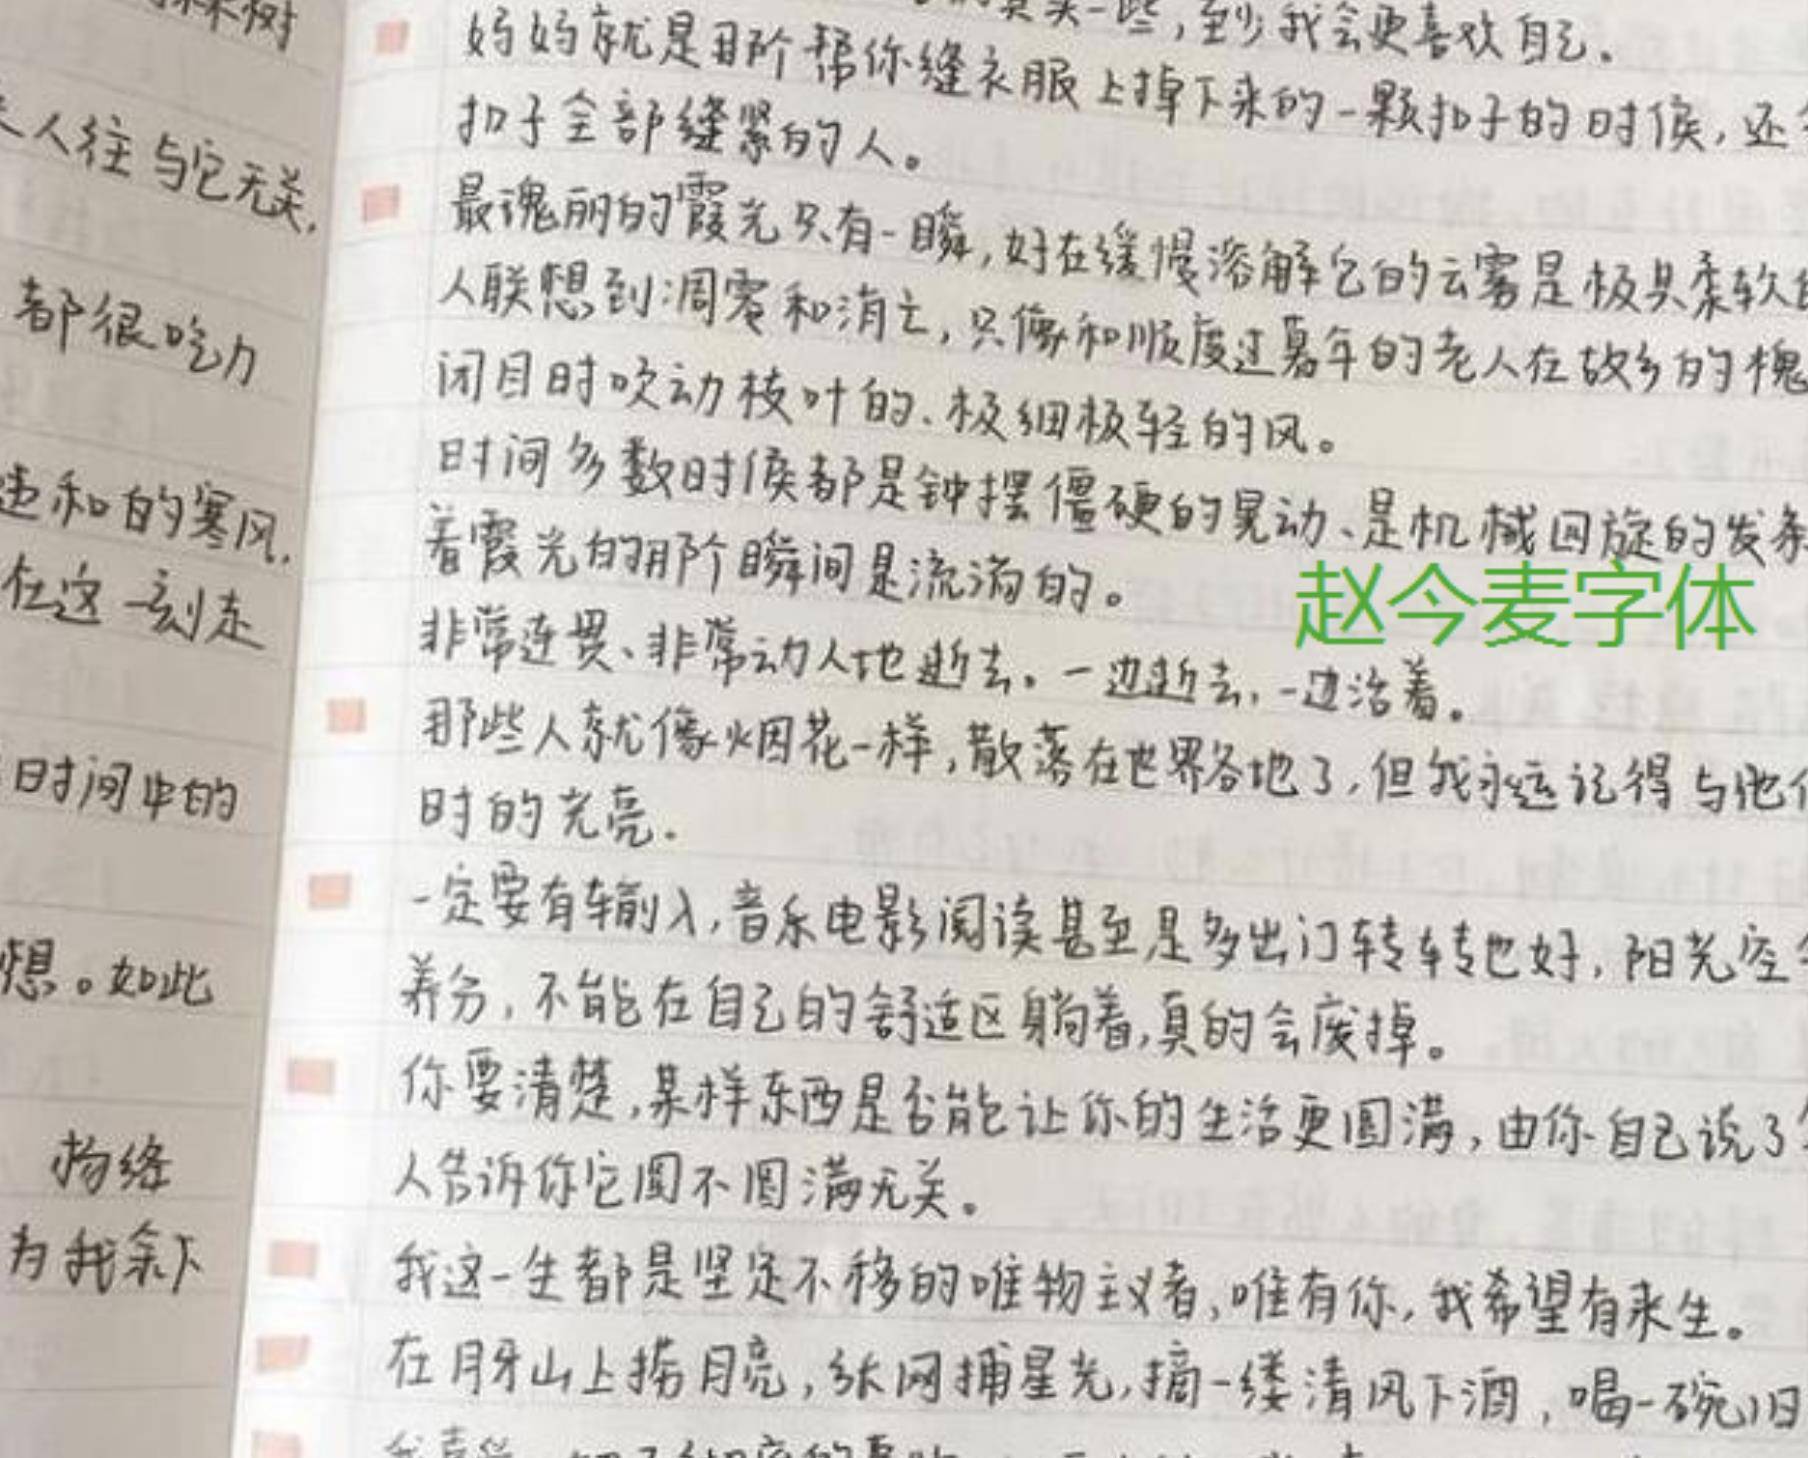 林树
人往与它无关,
都很吃力
违和的寒风,
在这一刻走
日时间中的
想。如此
为我余下
真实一些,至少我会更喜欢自己。
妈妈就是那个帮你缝衣服上掉下来的一颗扣子的时候,还
扣子全部缝紧的人。
最瑰丽的霞光只有一瞬,好在缓慢溶解它的云雾是极其柔软的
人联想到凋零和消亡,只像和顺度过暮年的老人在故乡的槐
闭目时吹动枝叶的、极细极轻的风。
时间多数时候都是钟摆僵硬的晃动、是机械回旋的发条
着霞光的那个瞬间是流淌的。
赵今麦字体
非常连贯、非常动人地逝去。一边逝去,一边活着。
那些人就像烟花一样,散落在世界各地了,但我永远记得与他们
时的光亮.
一定要有输入,音乐电影阅读甚至是多出门转转也好,阳光空
养分,不能在自己的舒适区躺着,真的会废掉。
你要清楚,某样东西是否能让你的生活更圆满,由你自己说了
人告诉你它圆不圆满无关。
我这一生都是坚定不移的唯物主义者,唯有你,我希望有来生。
在月牙山上捞月亮,张网捕星光,摘一缕清风下酒,喝一碗旧